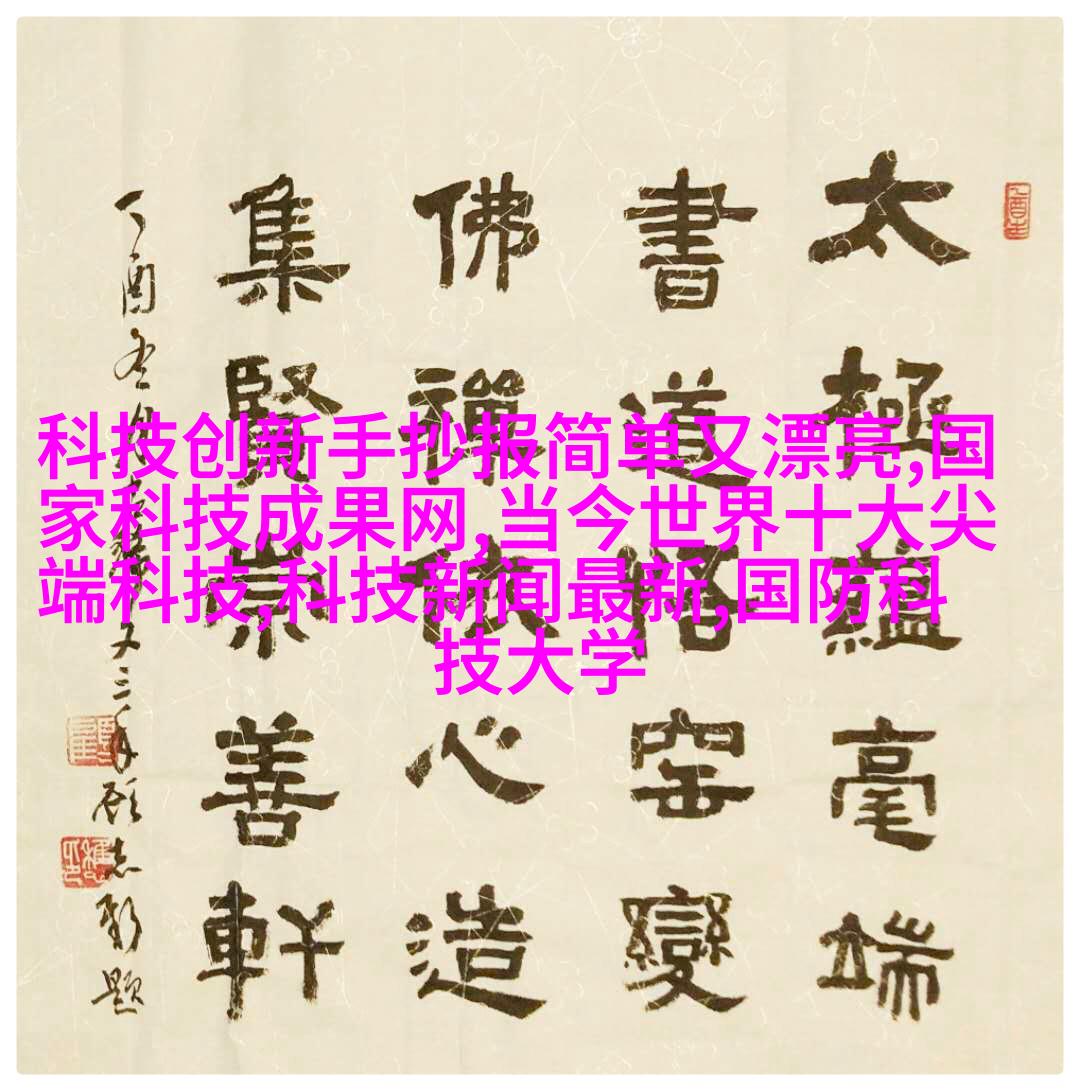 科技创新手抄报简单又漂亮,国
家科技成果网,当今世界十大尖
端科技,科技新闻最新,国防科
技大学
太極蘊毫端
書道悟窑變
佛禪心造
集賢崇善軒
丁酉冬題